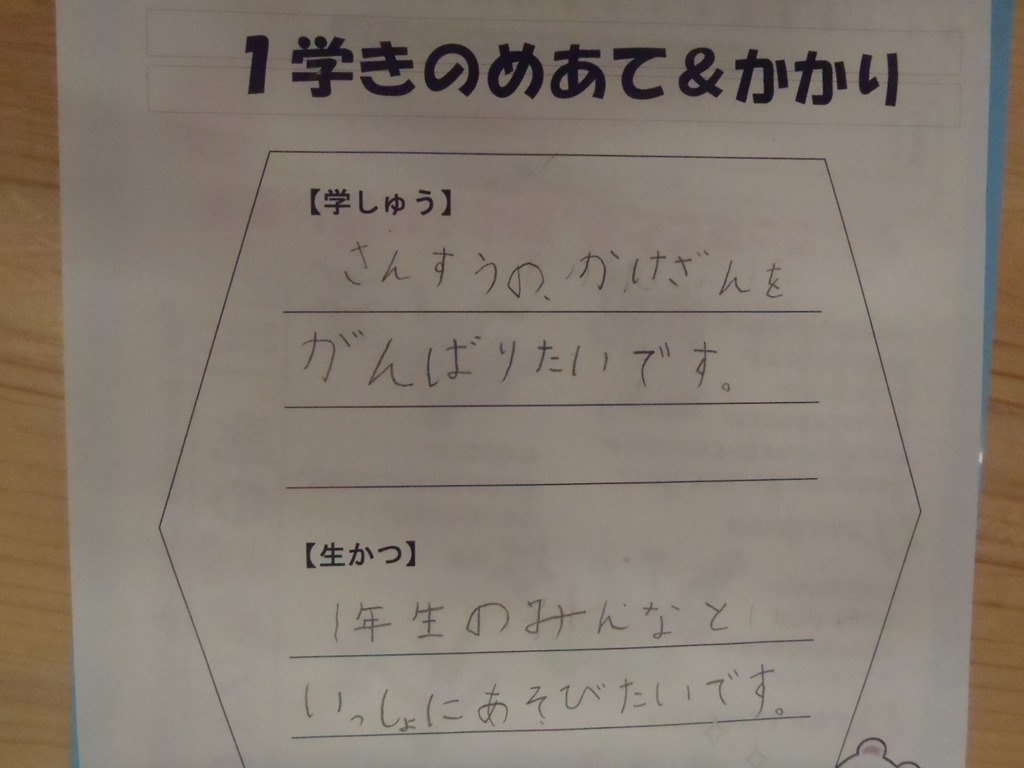 1学きのめあて&かかり
【学しゅう】
さんすうの、かけざんを
がんばりたいです。
【生かつ】
1年生のみんなと
いっしょにあそびたいです。